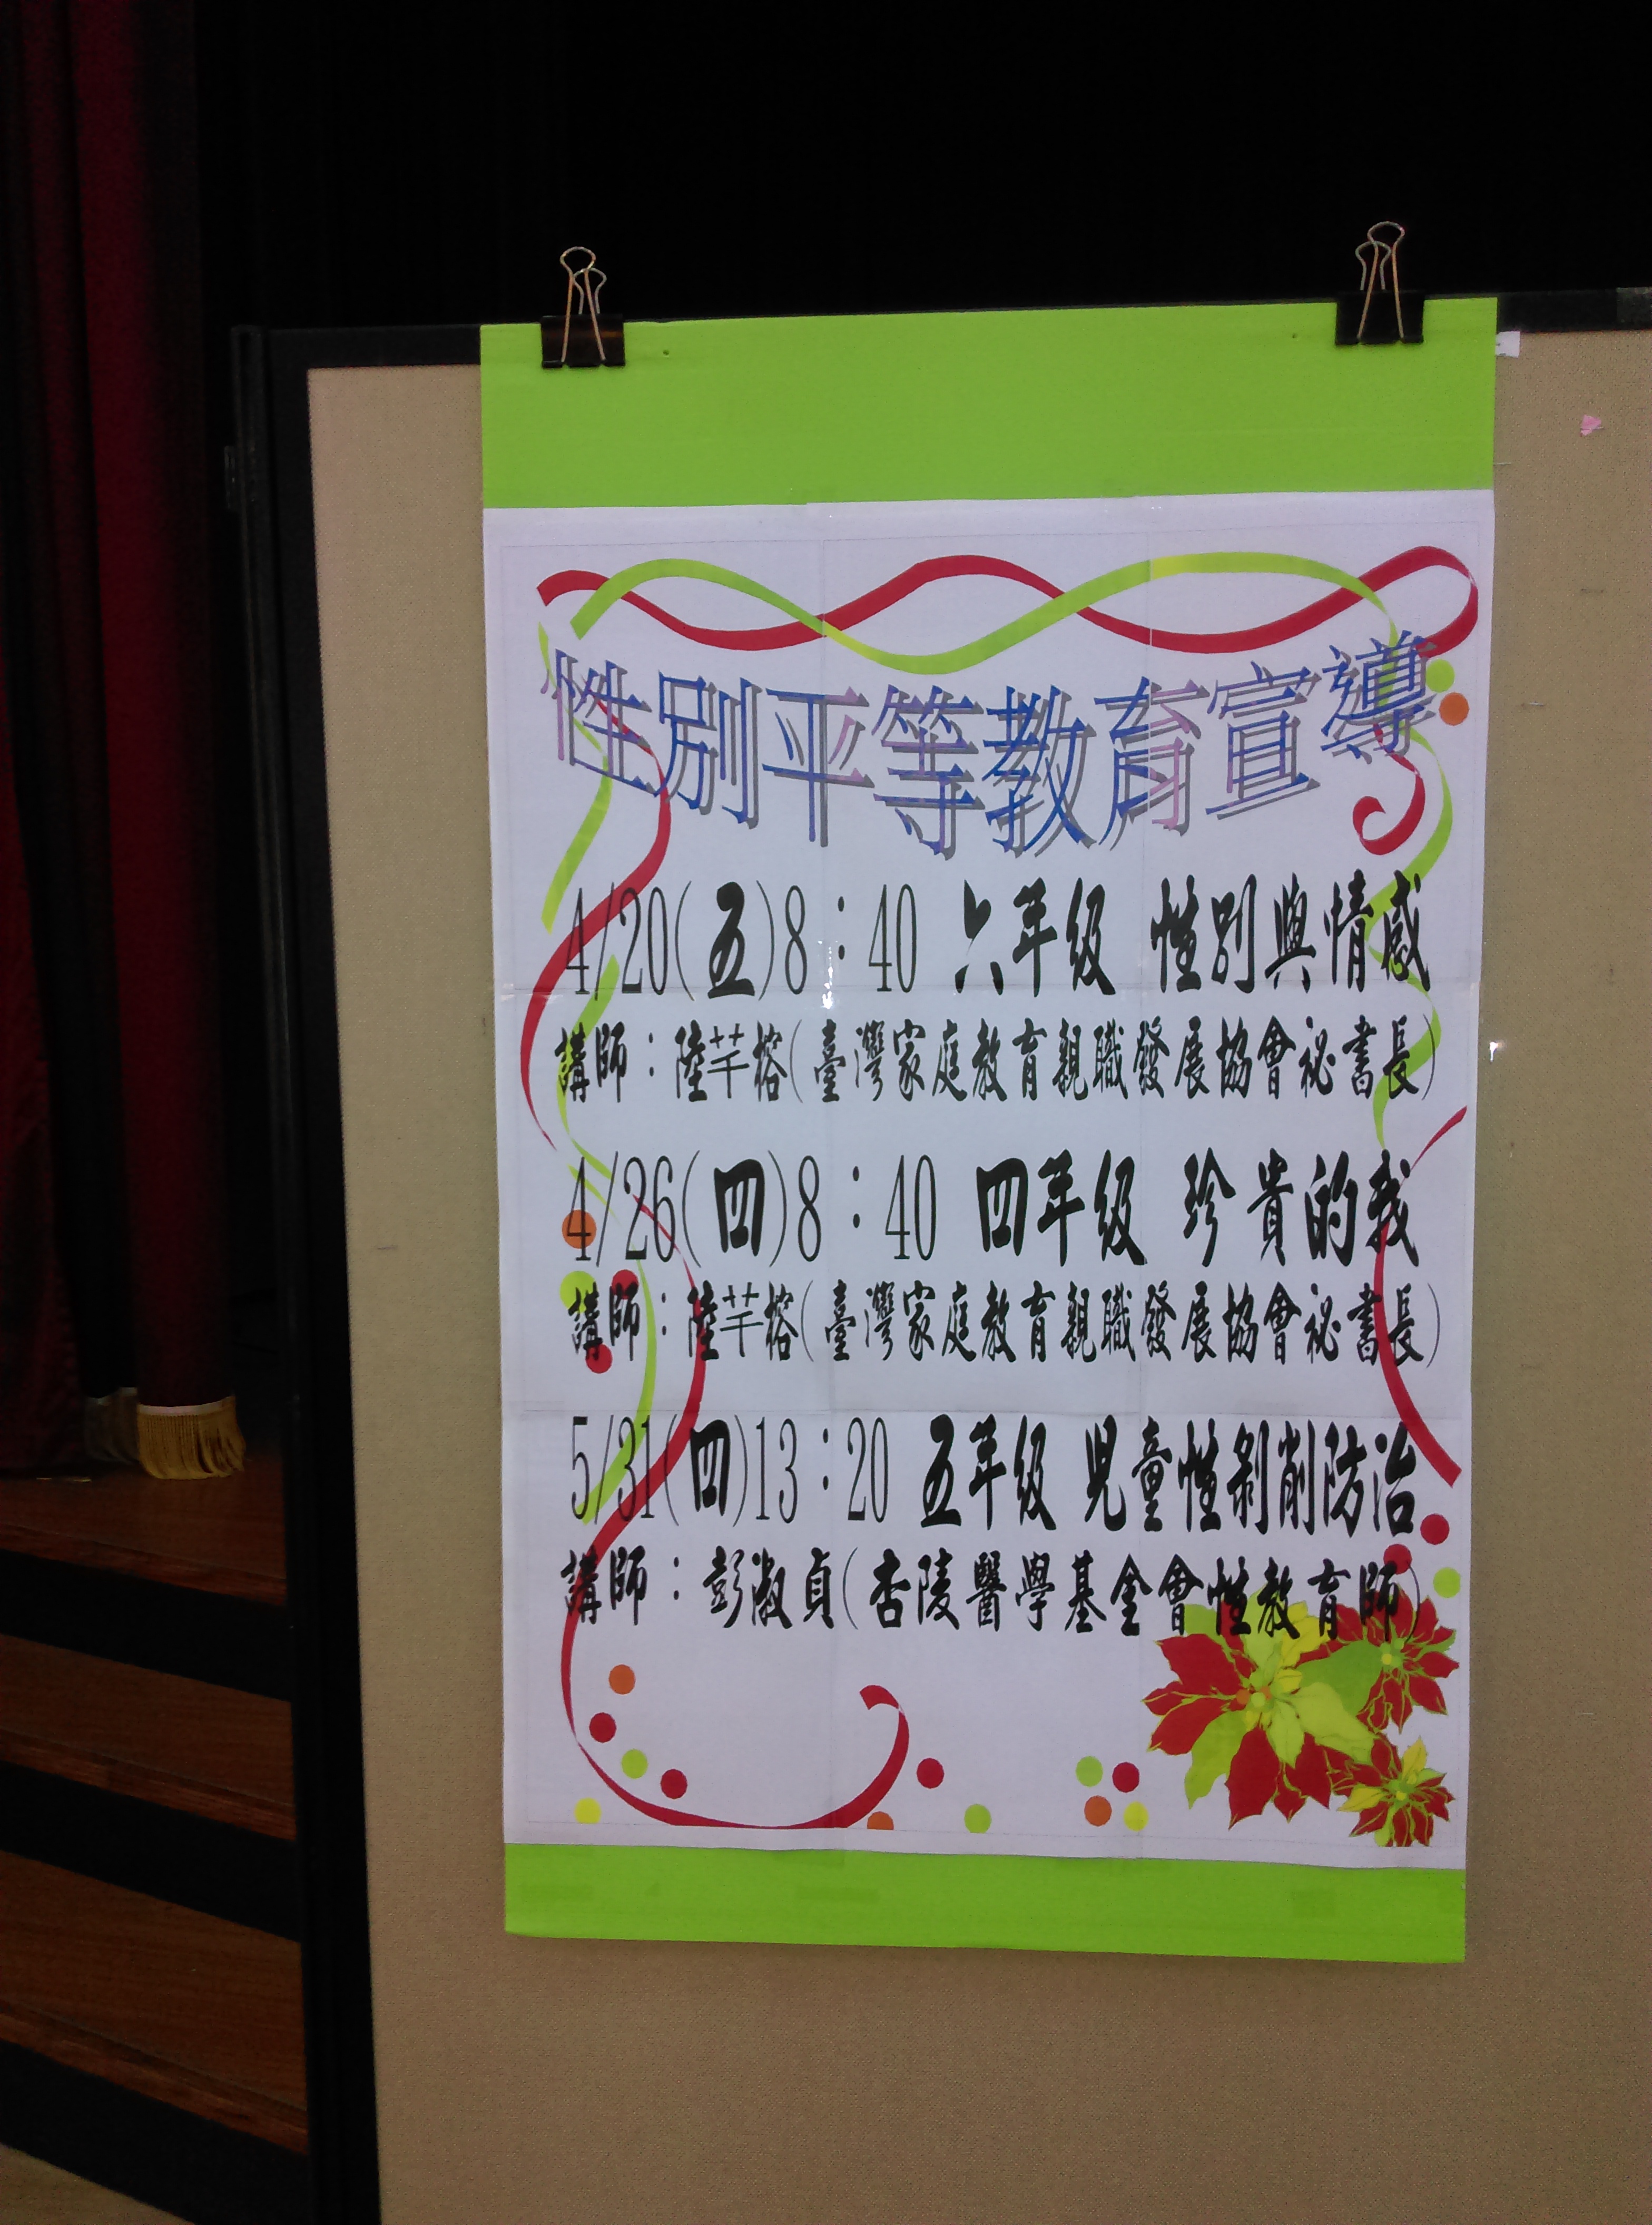 性別平等教育宣導
4/20(五)8：40 六年級 性別與情感
講師：陸芊榕(臺灣家庭教育親職發展協會祕書長)
4/26(四)8：40 四年級 珍貴的我
講師：陸芊榕(臺灣家庭教育親職發展協會祕書長)
5/31(四)13：20 五年級 兒童性剝削防治
講師：彭淑貞(杏陵醫學基金會性教育師)